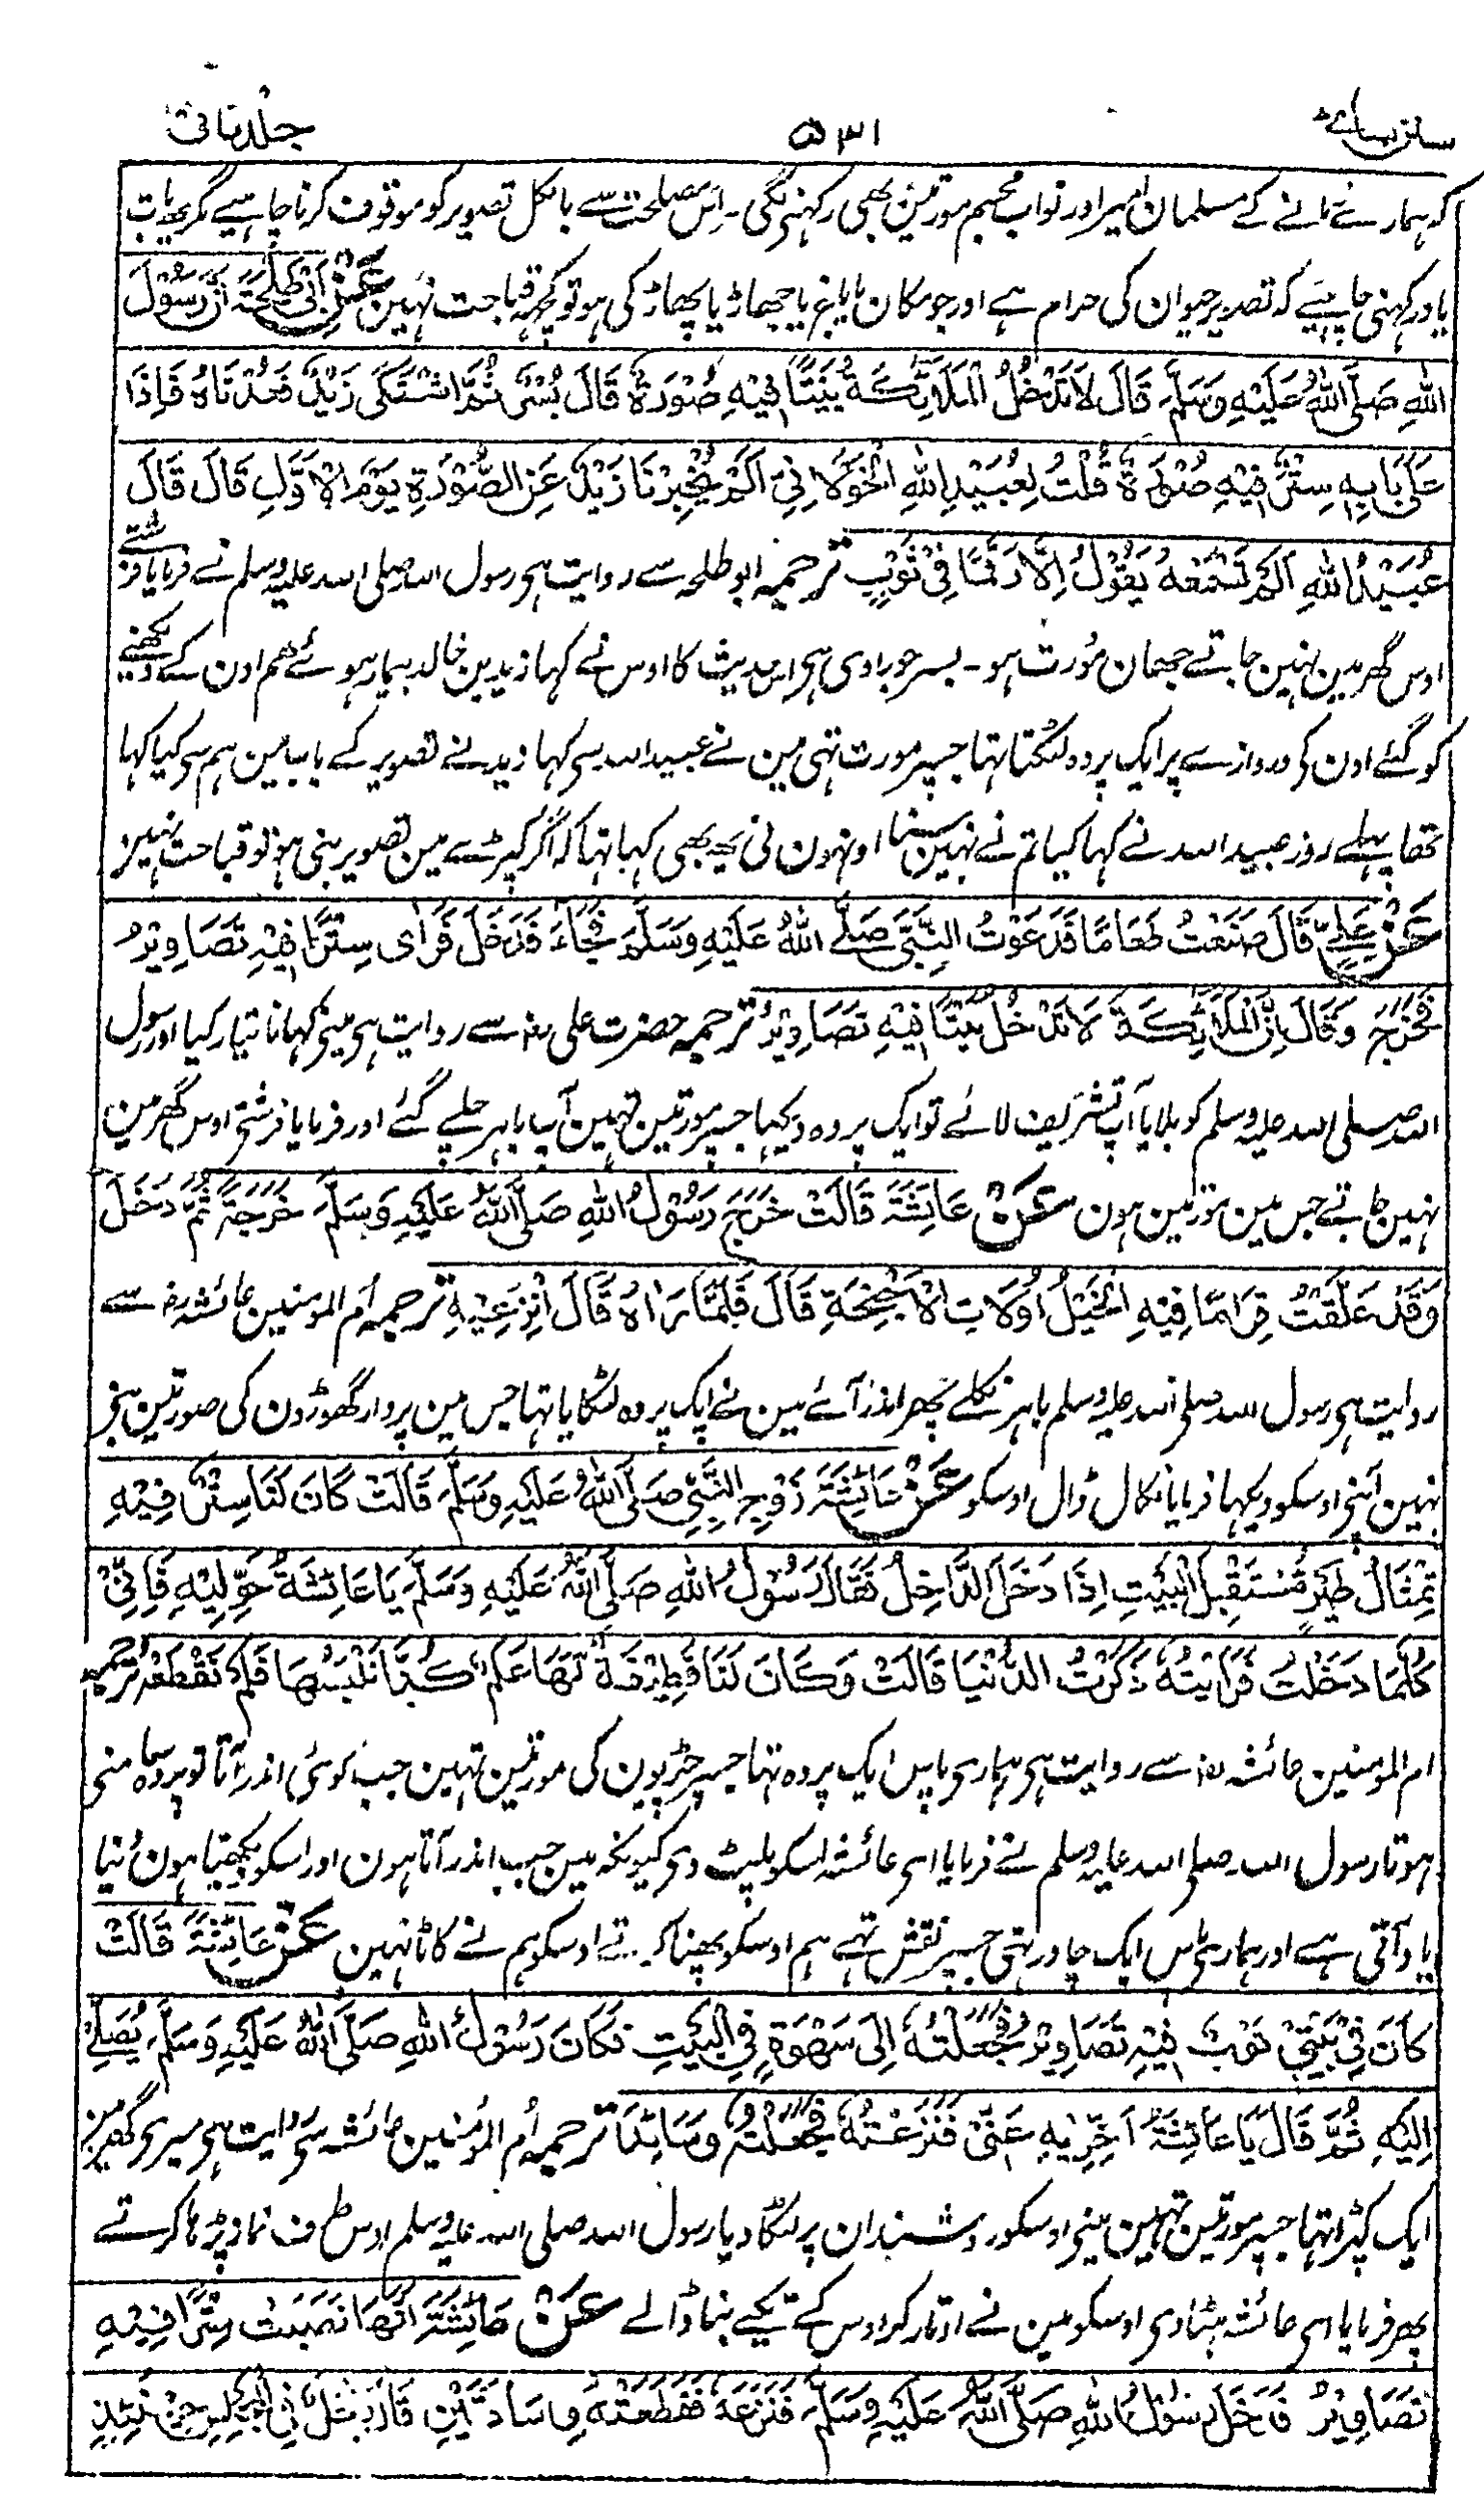 سنن نسائے
۵۳۱
جلد ثانی
کہ ہمارے زمانے کے مسلمان امیر اور نواب مجسم مورتین بھی رکہنے لگی ۔ اس مصلحت سے بالکل تصویر کو موقوف کرنا چاہیے مگر یہ بات
یاد رکہنی چاہیے کہ تصویر حیوان کی حرام ہے اور جو مکان یا باغ یا جھاڑ یا پھاڑ کی ہو تو کچہہ قباحت نہین عَنْ اَبِیْ طَلْحَةَ اَنَّ رَسُوْلَ
اللّٰهِ صَلَّی اللّٰهُ عَلَیْهِ وَسَلَّمَ قَالَ لَا تَدْخُلُ الْمَلَائِكَةُ بَیْتًا فِیْهِ صُوْرَةٌ قَالَ بُسْرٌ ثُمَّ اشْتَكٰی زَیْدٌ فَعُدْنَاهُ فَاِذَا
عَلٰی بَابِهٖ سِتْرٌ فِیْهِ صُوْرَةٌ قُلْتُ لِعُبَیْدِ اللّٰهِ الْخَوْلَانِیِّ اَلَمْ یُخْبِرْنَا زَیْدٌ عَنِ الصُّوْرَةِ یَوْمَ الْاَوَّلِ قَالَ قَالَ
عُبَیْدُ اللّٰهِ اَلَمْ تَسْمَعْهُ یَقُوْلُ اِلَّا رَقْمًا فِیْ ثَوْبٍ ترجمہ ابو طلحہ سے روایت ہی رسول اللہ صلی اللہ علیہ وسلم نے فرمایا فرشتے
اوس گھر مین نہین جاتے جھان مورت ہو ۔ بسر جو راوی ہی اس حدیث کا اوس نے کہا زید بن خالد بیمار ہوئے ھم اون کے دیکھنے
کو گئے اون کی دروازے پر ایک پردہ لٹکتا تہا جسپر مورت تہی مین نے عبید اللہ سی کہا زید نے تصویر کے باب مین ہم سی کیا کہا
تھا پہلے روز عبید اللہ نے کہا کیا تم نے نہین سنا اونہون نی یہ بھی کہا تہا کہ اگر کپڑے مین تصویر بنی ہو تو قباحت نہین
عَنْ عَلِیٍّ قَالَ صَنَعْتُ طَعَامًا فَدَعَوْتُ النَّبِیَّ صَلَّی اللّٰهُ عَلَیْهِ وَسَلَّمَ فَجَاءَ فَدَخَلَ فَرَاٰی سِتْرًا فِیْهِ تَصَاوِیْرُ
فَخَرَجَ وَقَالَ اِنَّ الْمَلَائِكَةَ لَا تَدْخُلُ بَیْتًا فِیْهِ تَصَاوِیْرُ ترجمہ حضرت علی رضہ سے روایت ہی مینی کہانا تیار کیا اور رسول
اللہ صلی اللہ علیہ وسلم کو بلایا آپ تشریف لائے تو ایک پردہ دیکہا جسپر مورتین تہین آپ باہر چلے گئے اور فرمایا فرشتے اوس گھر مین
نہین جاتے جس مین مورتین ہون عَنْ عَائِشَةَ قَالَتْ خَرَجَ رَسُوْلُ اللّٰهِ صَلَّی اللّٰهُ عَلَیْهِ وَسَلَّمَ خَرْجَةً ثُمَّ دَخَلَ
وَقَدْ عَلَّقْتُ قِرَامًا فِیْهِ الْخَیْلُ اُولَاتُ الْاَجْنِحَةِ قَالَ فَلَمَّا رَاٰهُ قَالَ انْزِعِیْهِ ترجمہ اُم المومنین عائشہ رضہ سے
روایت ہی رسول اللہ صلی اللہ علیہ وسلم باہر نکلے پھر اندر آئے مین نے ایک پردہ لٹکایا تہا جس مین پردار گھوڑون کی صورتین بنی
تہین آپنی اوسکو دیکہا فرمایا نکال ڈال اوسکو عَنْ عَائِشَةَ زَوْجِ النَّبِیِّ صَلَّی اللّٰهُ عَلَیْهِ وَسَلَّمَ قَالَتْ كَانَ لَنَا سِتْرٌ فِیْهِ
تِمْثَالُ طَیْرٍ مُسْتَقْبِلَ الْبَیْتِ اِذَا دَخَلَ الدَّاخِلُ فَقَالَ رَسُوْلُ اللّٰهِ صَلَّی اللّٰهُ عَلَیْهِ وَسَلَّمَ یَا عَائِشَةُ حَوِّلِیْهِ فَاِنِّیْ
كُلَّمَا دَخَلْتُ فَرَاَیْتُهٗ ذَكَرْتُ الدُّنْیَا قَالَتْ وَكَانَ لَنَا قَطِیْفَةٌ لَهَا عَلَمٌ كُنَّا نَلْبَسُهَا فَلَمْ نَقْطَعْهُ ترجمہ
ام المومنین عائشہ رضہ سے روایت ہی ہماری پاس ایک پردہ تہا جسپر چڑیون کی مورتین تہین جب کوئی اندر آتا تو پردہ سامنی
ہوتا رسول اللہ صلی اللہ علیہ وسلم نے فرمایا ای عائشہ اسکو پلٹ دی کیونکہ مین جب اندر آتا ہون اور اسکو دیکھتا ہون دُنیا
یاد آتی ہے اور ہماری پاس ایک چادر تہی جسپر نقش تہے ہم اوسکو پھنا کرتے اوسکو ہم نے کاٹا نہین عَنْ عَائِشَةَ قَالَتْ
كَانَ فِیْ بَیْتِیْ ثَوْبٌ فِیْهِ تَصَاوِیْرُ فَجَعَلْتُهٗ اِلٰی سَهْوَةٍ فِی الْبَیْتِ فَكَانَ رَسُوْلُ اللّٰهِ صَلَّی اللّٰهُ عَلَیْهِ وَسَلَّمَ یُصَلِّیْ
اِلَیْهِ ثُمَّ قَالَ یَا عَائِشَةُ اَخِّرِیْهِ عَنِّیْ فَنَزَعْتُهٗ فَجَعَلْتُهٗ وَسَائِدَ ترجمہ اُم المؤمنین عائشہ سی روایت ہی میری گھر مین
ایک کپڑا تہا جسپر مورتین تہین مینی اوسکو روشندان پر لٹکا دیا رسول اللہ صلی اللہ علیہ وسلم اوس طرف نماز پڑہا کرتے
پھر فرمایا ای عائشہ ہٹا دی اوسکو مین نے اوتار کر اوس کے تکیے بنا ڈالے عَنْ عَائِشَةَ اَنَّهَا نَصَبَتْ سِتْرًا فِیْهِ
تَصَاوِیْرُ فَدَخَلَ رَسُوْلُ اللّٰهِ صَلَّی اللّٰهُ عَلَیْهِ وَسَلَّمَ فَنَزَعَهٗ فَقَطَعَتْهُ وِسَادَتَیْنِ قَالَ رَجُلٌ فِی الْمَجْلِسِ حِیْنَئِذٍ